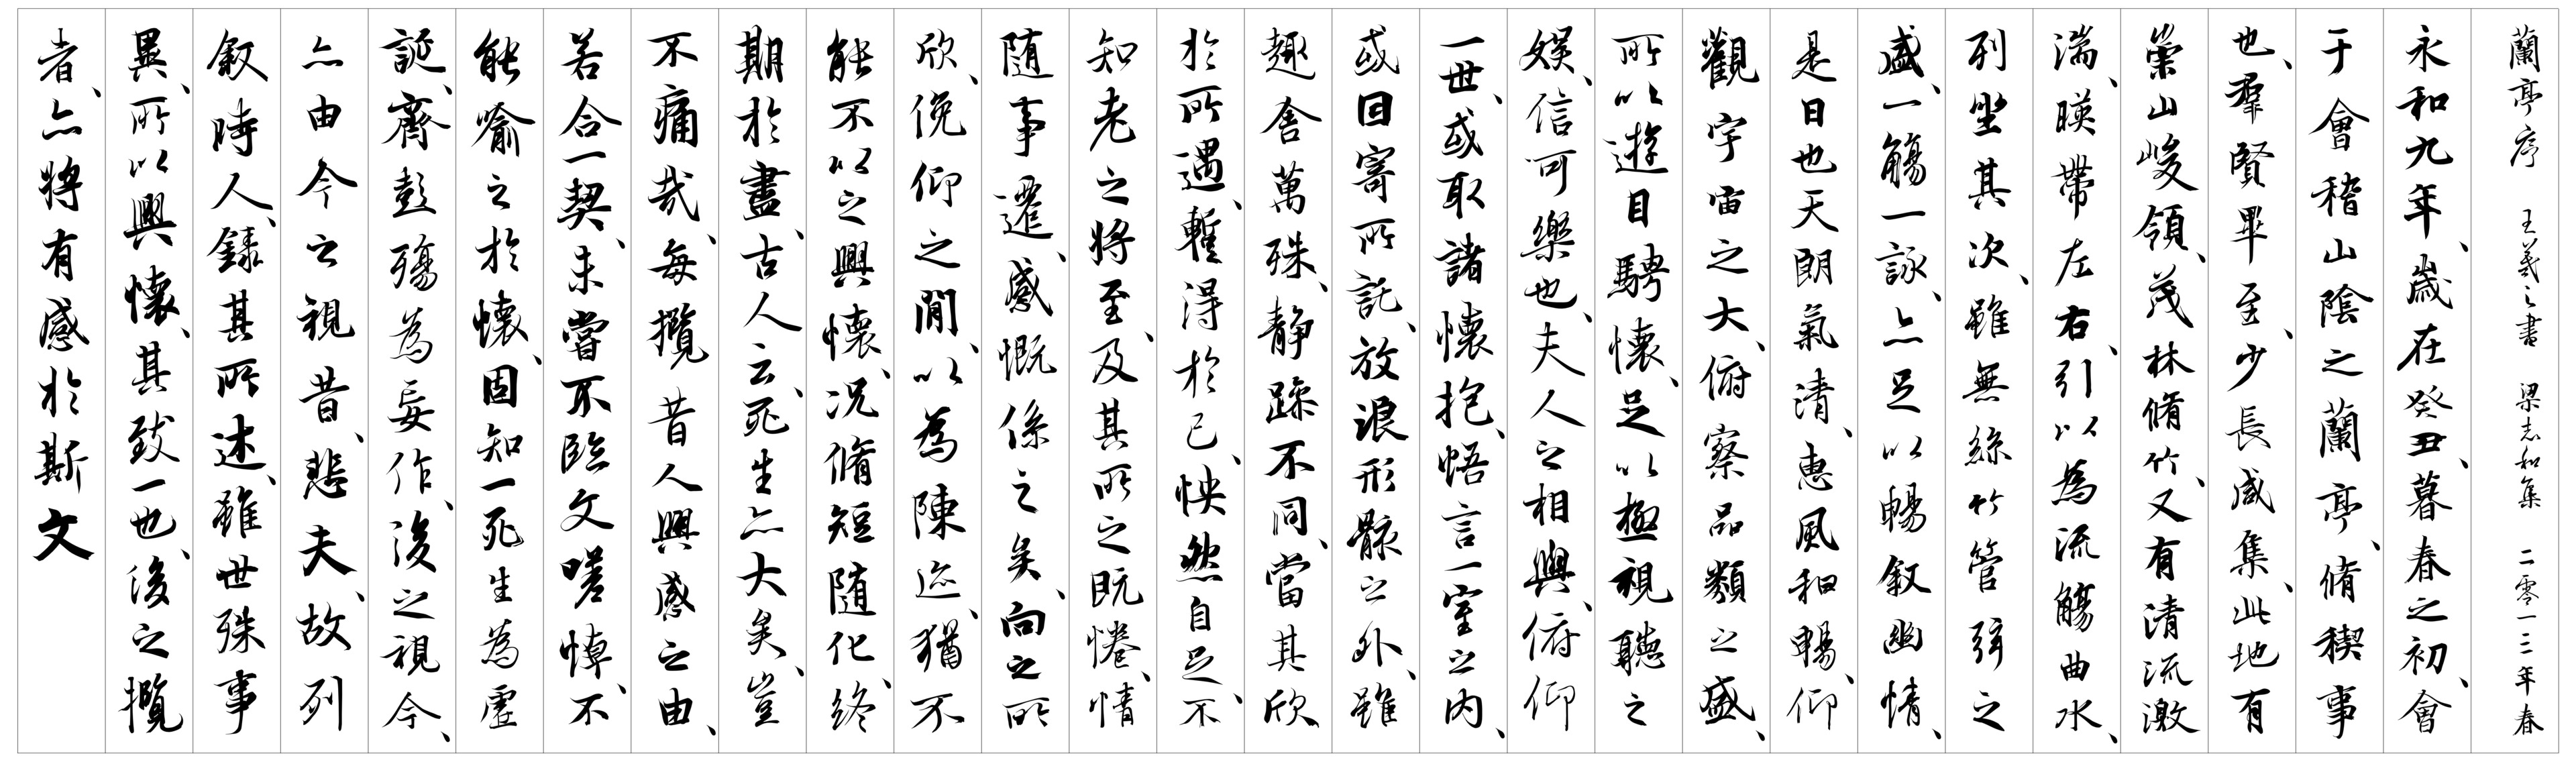 蘭亭序 王羲之書 梁志和集 二零一三年春
永和九年、歲在癸丑、暮春之初、會
于會稽山陰之蘭亭、脩稧事
也、羣賢畢至、少長咸集、此地有
崇山峻領、茂林脩竹、又有清流激
湍、暎帶左右、引以為流觴曲水、
列坐其次、雖無絲竹管弦之
盛、一觴一詠、亦足以暢叙幽情、
是日也天朗氣清、惠風和暢、仰
觀宇宙之大、俯察品類之盛、
所以遊目騁懷、足以極視聽之
娛、信可樂也、夫人之相與、俯仰
一世、或取諸懷抱、悟言一室之内、
或因寄所託、放浪形骸之外、雖
趣舍萬殊、静躁不同、當其欣
於所遇、暫得於己、怏然自足、不
知老之將至、及其所之既惓、情
随事遷、感慨係之矣、向之所
欣、俛仰之閒、以為陳迹、猶不
能不以之興懷、况脩短随化、終
期於盡、古人云、死生亦大矣、豈
不痛哉、每攬昔人興感之由、
若合一契、未嘗不臨文嗟悼、不
能喻之於懷、固知一死生為虛
誕、齊彭殤為妄作、後之視今、
亦由今之視昔、悲夫、故列
叙時人、錄其所述、雖世殊事
異、所以興懷、其致一也、後之攬
者、亦將有感於斯文